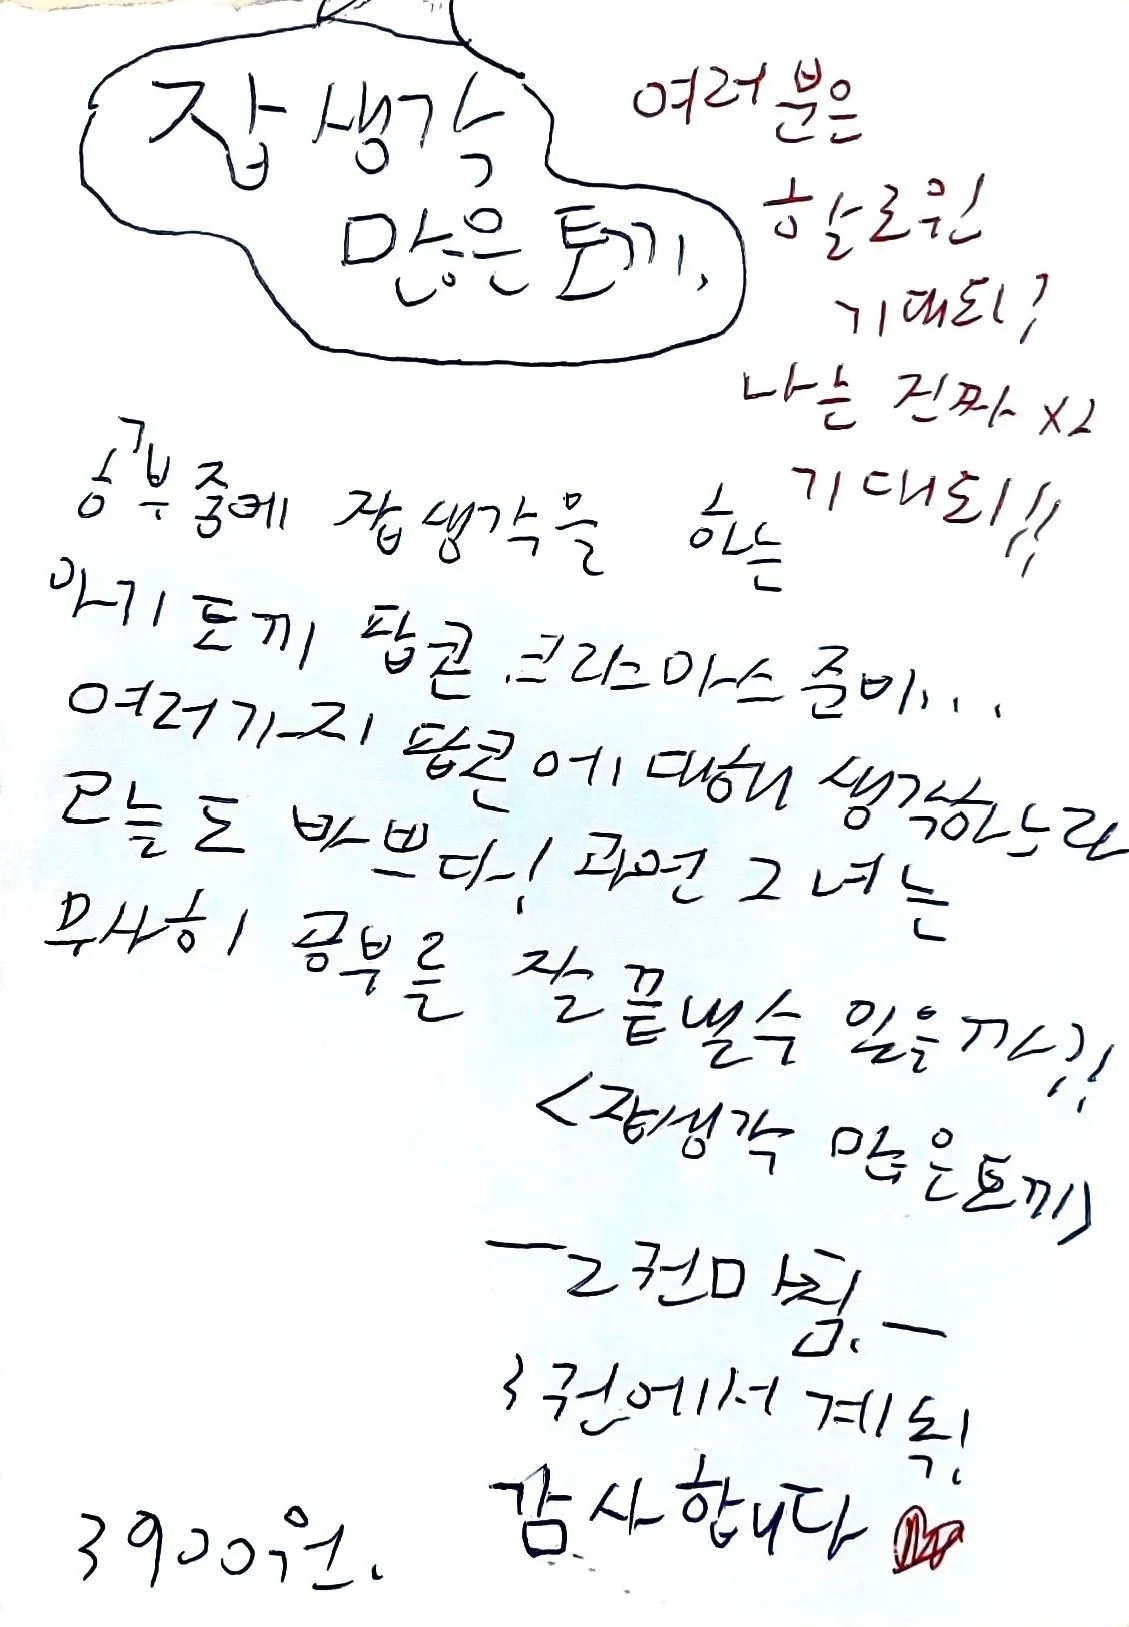 잡생각
많은 토끼.
여러분은
할로윈
기대되?
나는 진짜 x2
기대되!!
공부 중에 잡생각을 하는
아기 토끼 팝콘 크리스마스 준비...
여러가지 팝콘에 대해 생각하느라
오늘도 바쁘다! 과연 그녀는
무사히 공부를 잘 끝낼수 있을까?!
<잡생각 많은 토끼>
ㅡ2권마침.ㅡ
3권에서 계속!
감사합니다
3900원.